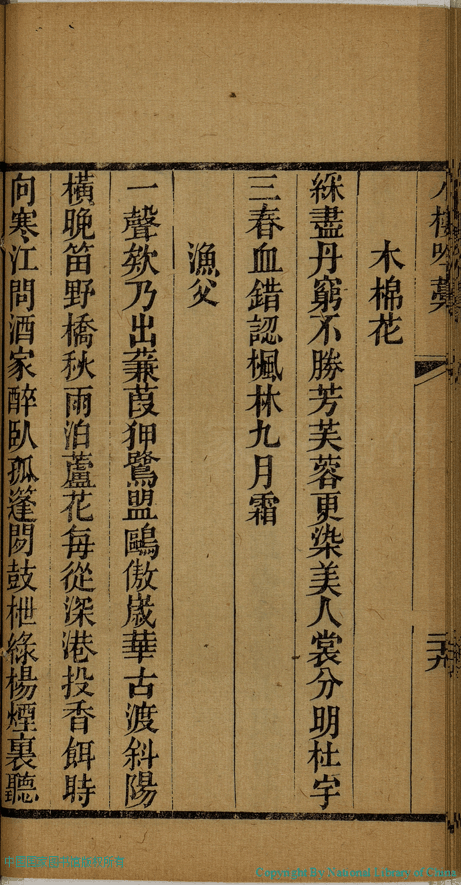 木棉花
綵盡丹窮不勝芳芙蓉更染美人裳分明杜宇
三春血錯認楓林九月霜
漁父
一聲欸乃出蒹葭狎鷺盟鷗傲歲華古渡斜陽
橫晚笛野橋秋雨泊蘆花每從深港投香餌時
向寒江問酒家醉臥孤篷閑鼓枻綠楊煙裏聽
Copyright by National Library of China